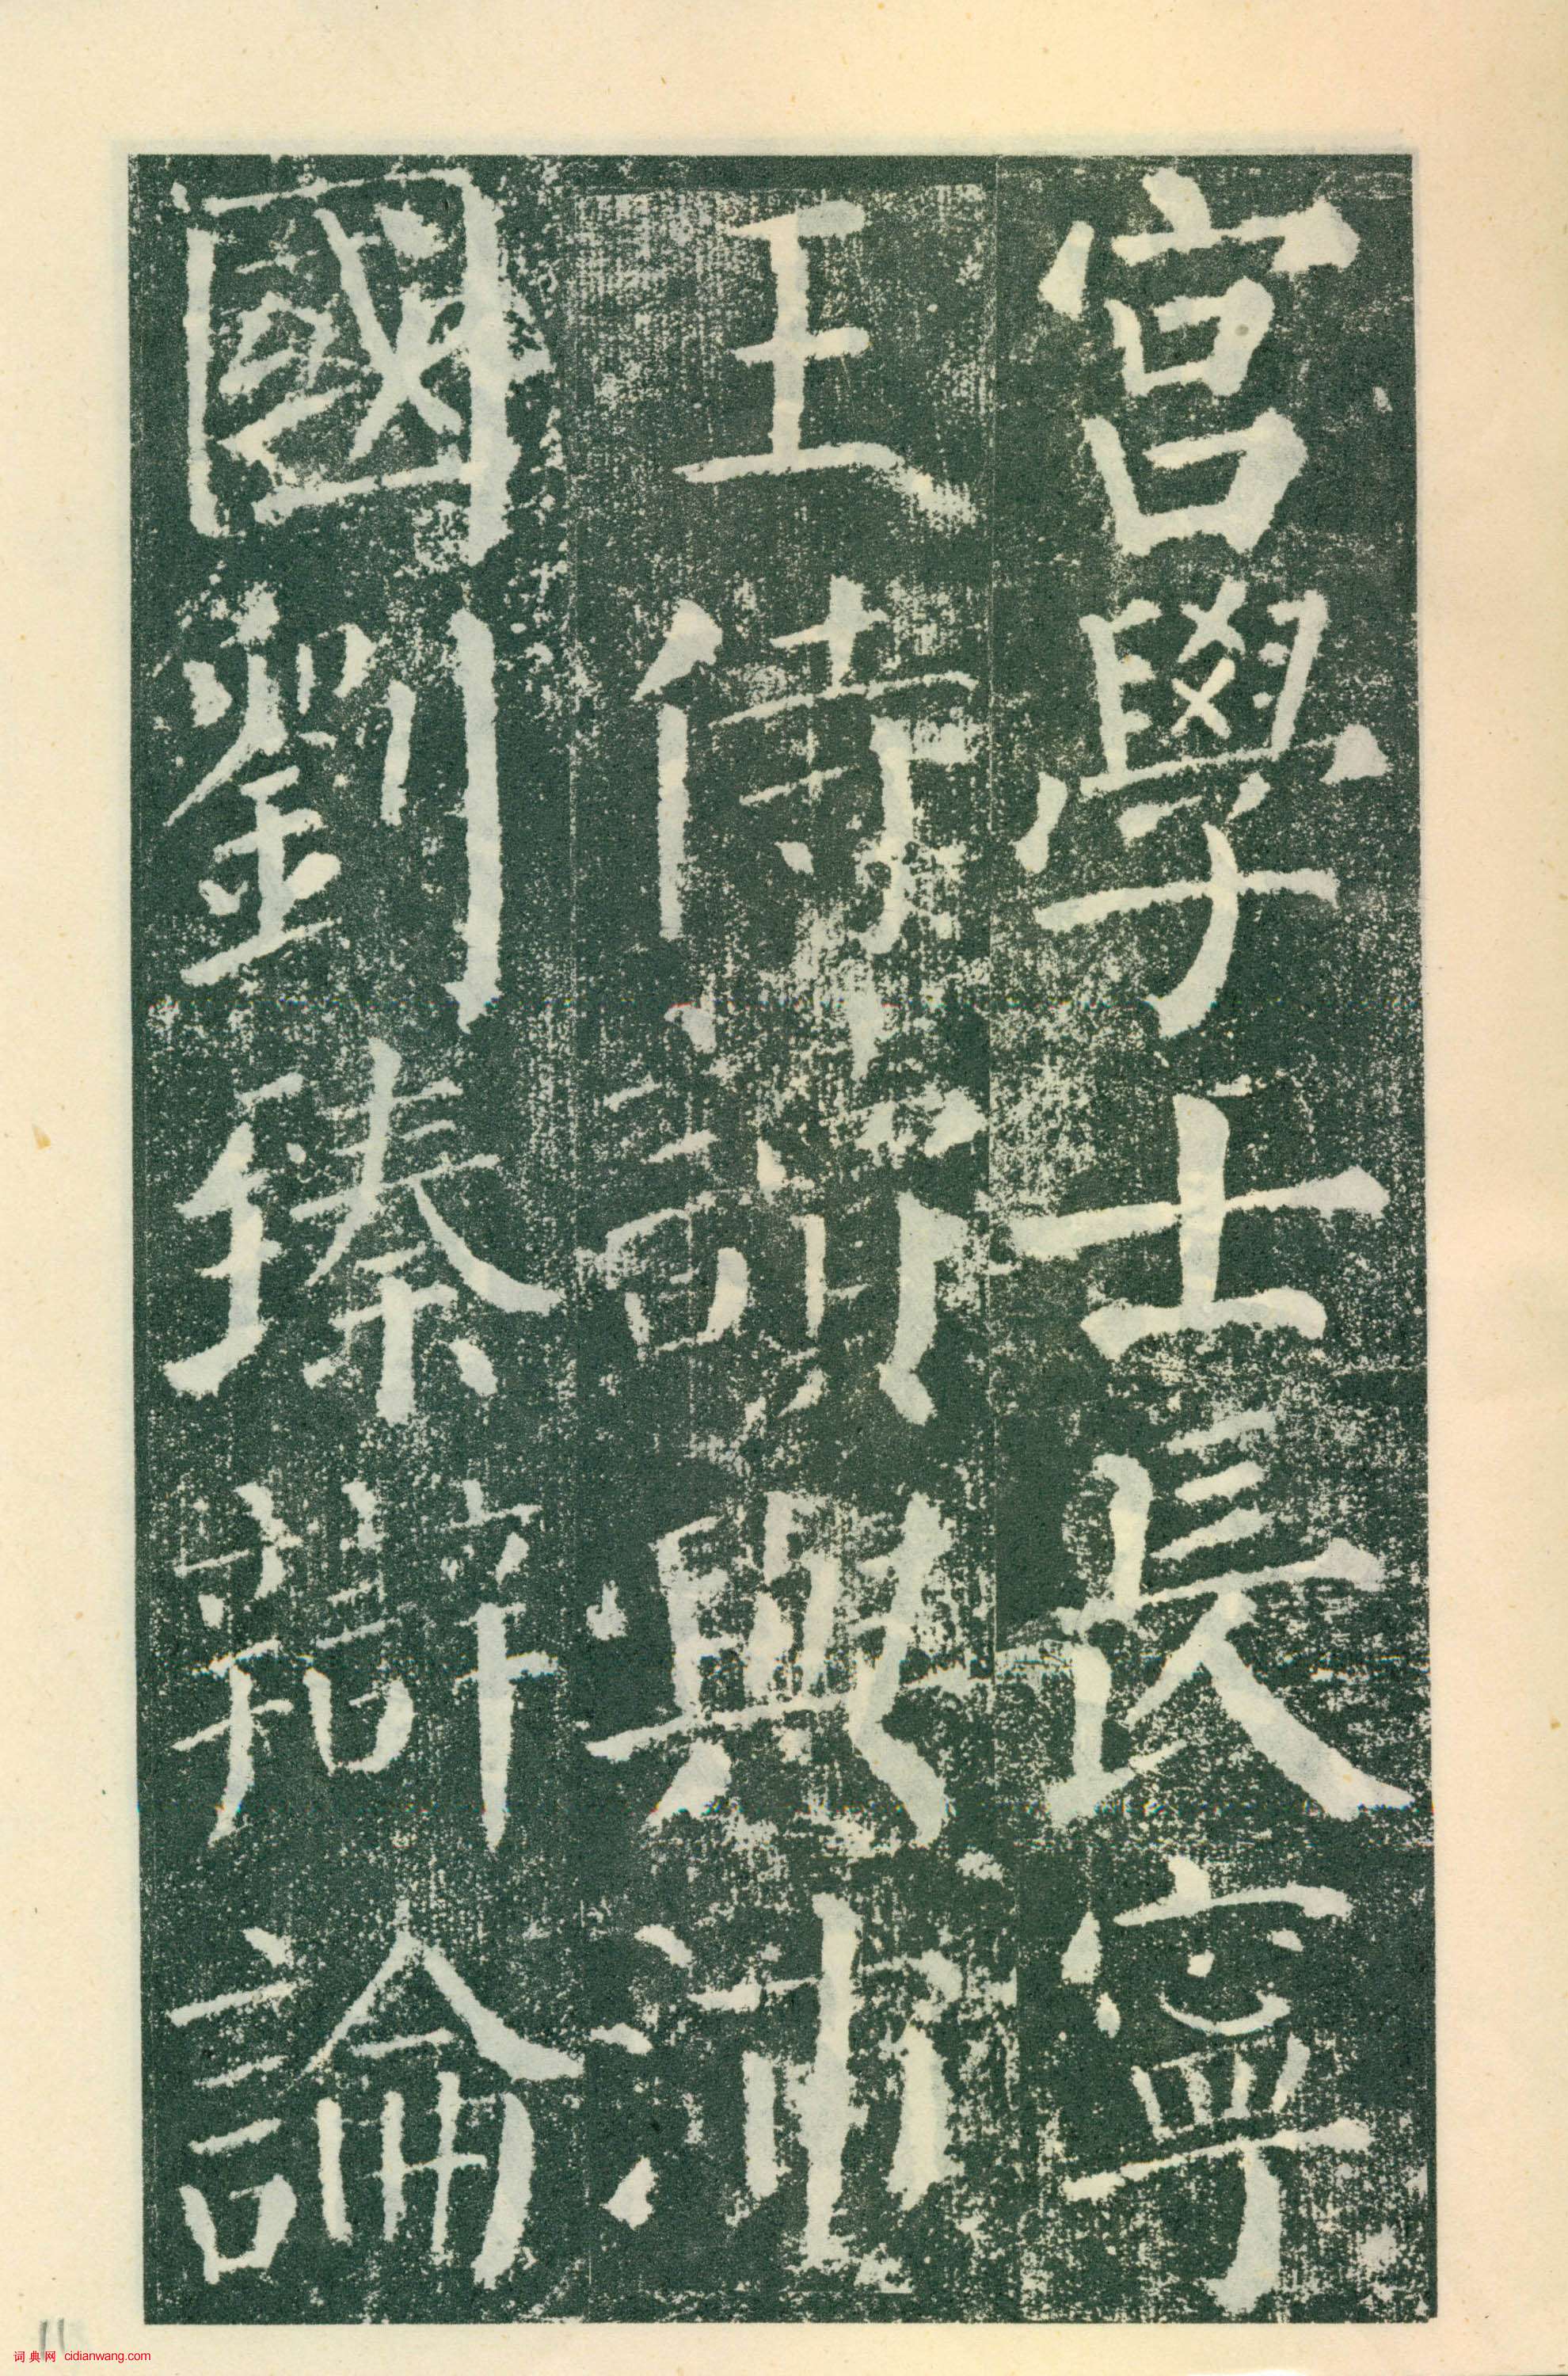 宮學士長寧
王侍讀與沛
國劉臻辯論
11
词典网 cidianwang.com